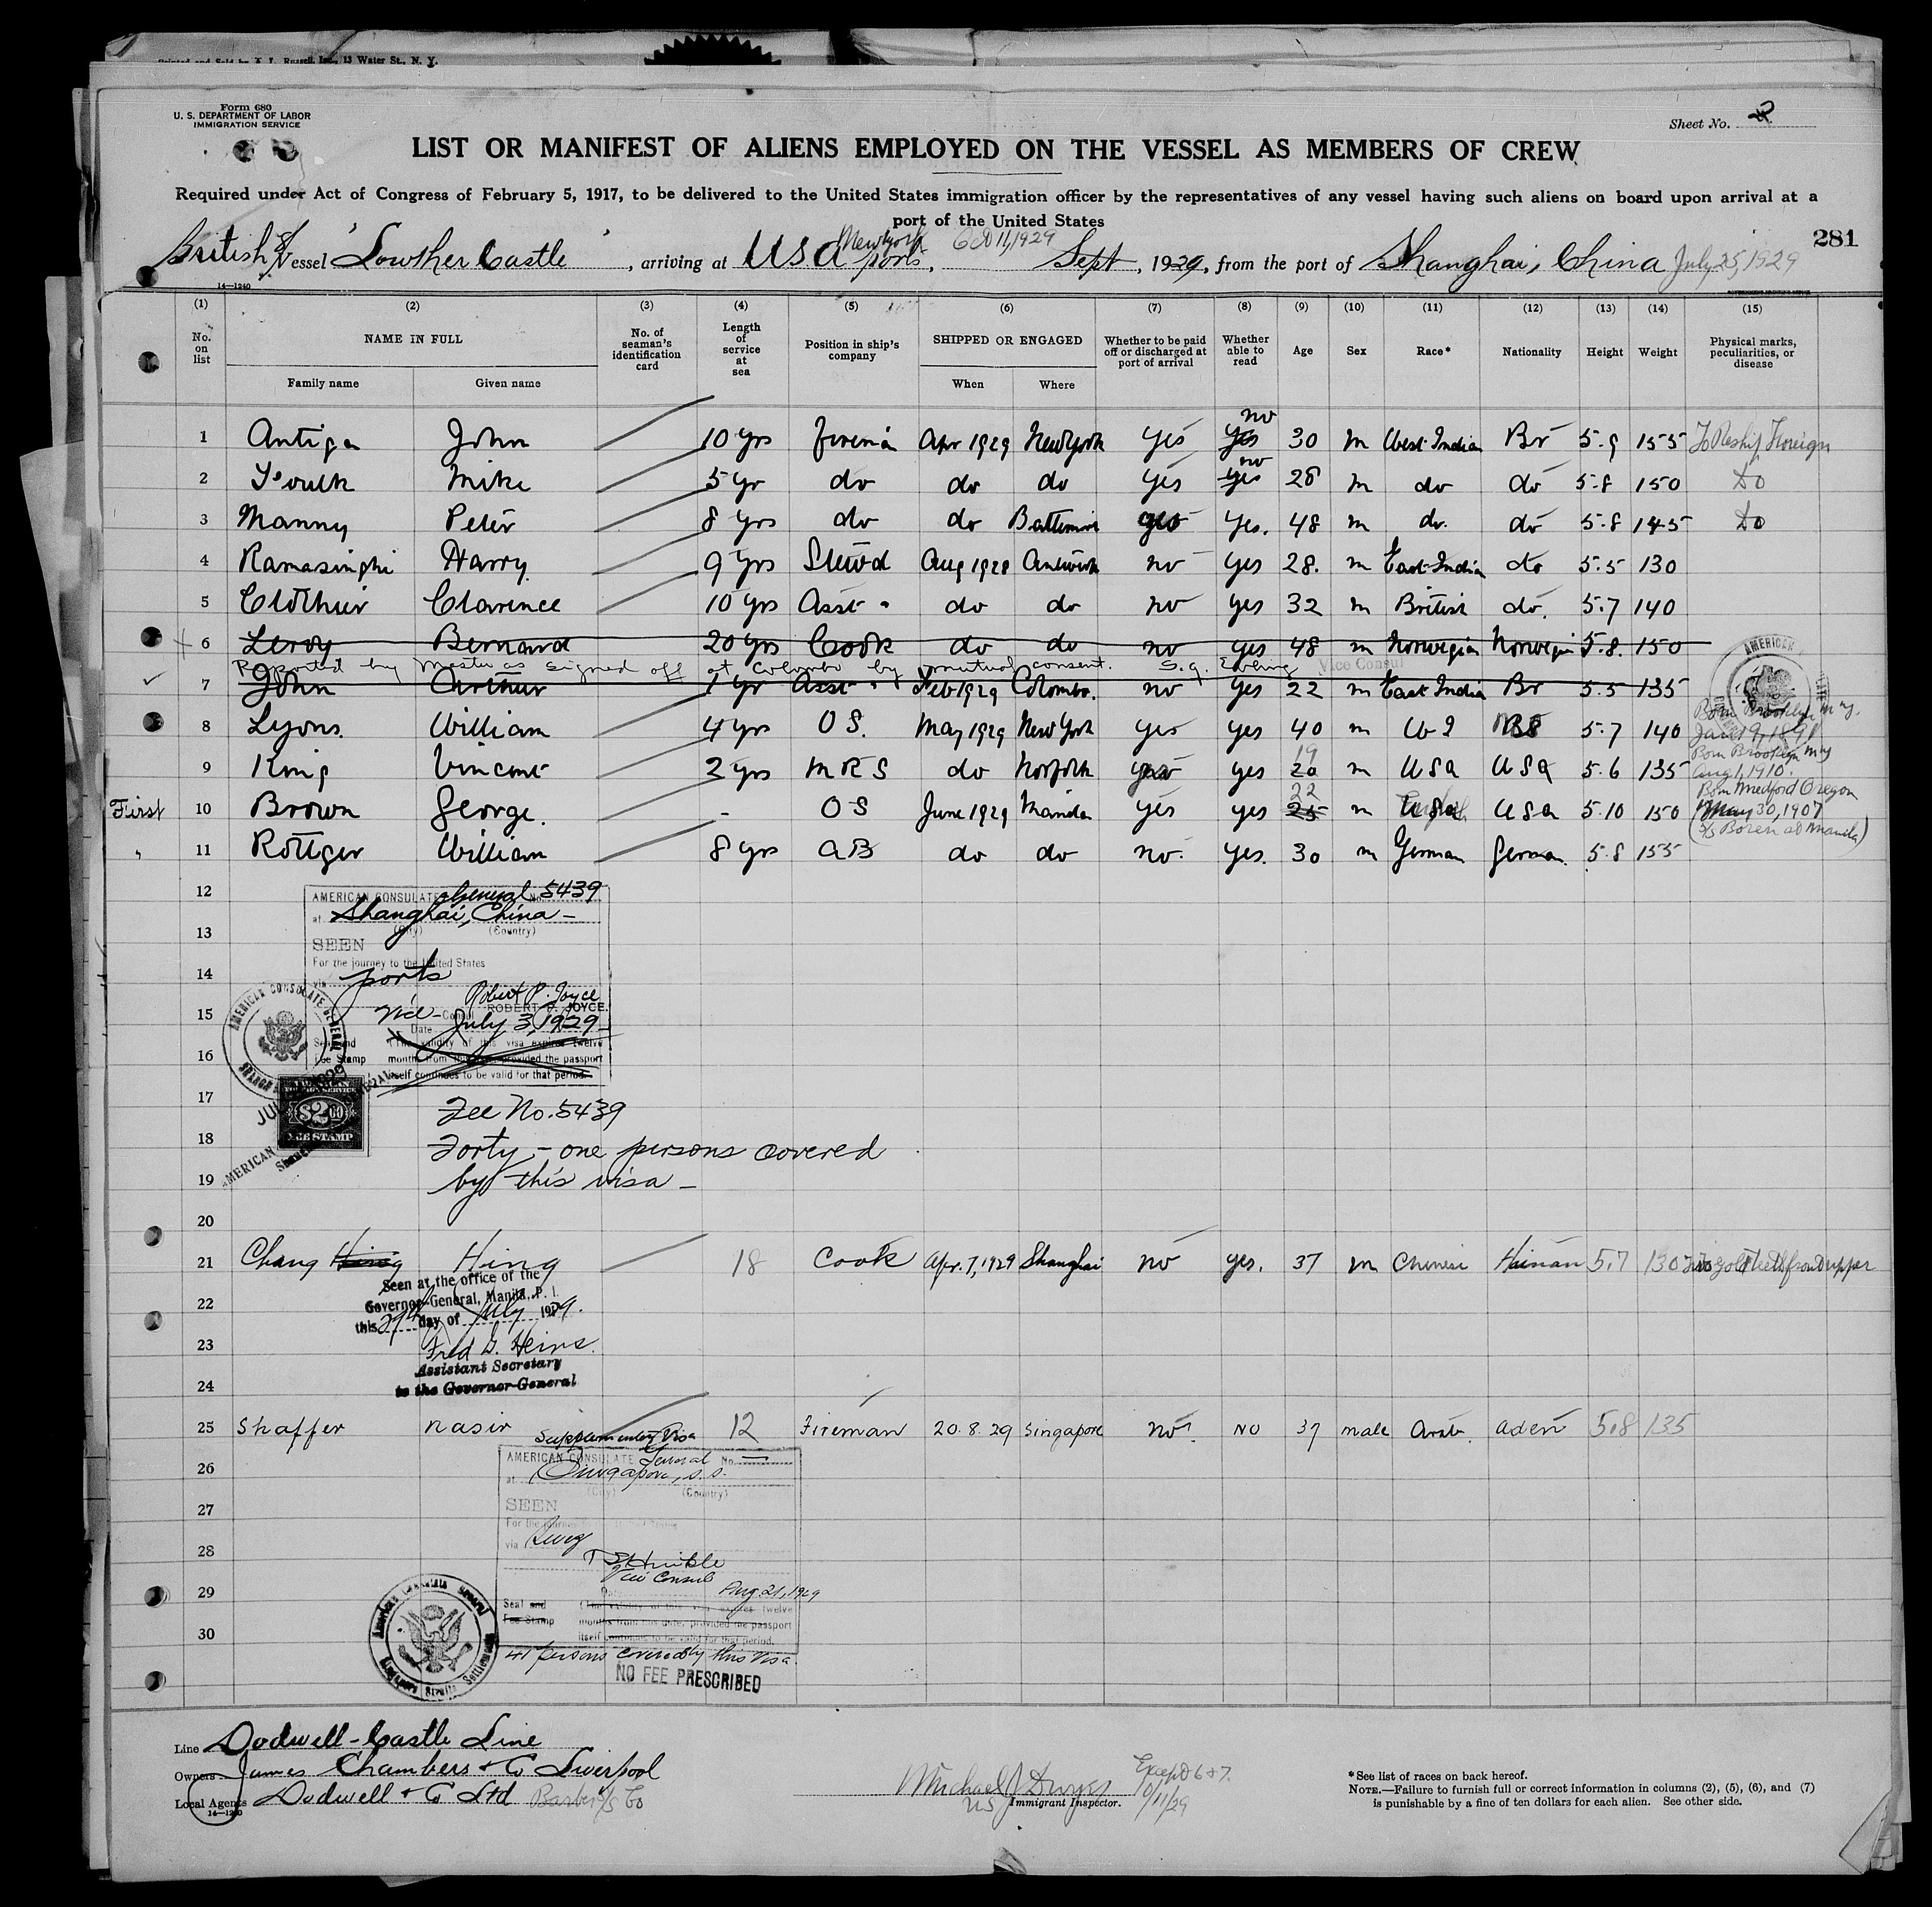 13 Water St., N. Y.
Form 680
U. S. DEPARTMENT OF LABOR
IMMIGRATION SERVICE
Sheet No. 2
LIST OR MANIFEST OF ALIENS EMPLOYED ON THE VESSEL AS MEMBERS OF CREW
Required under Act of Congress of February 5, 1917, to be delivered to the United States immigration officer by the representatives of any vessel having such aliens on board upon arrival at a
port of the United States
281
New York Oct 11, 1929
British S/ Vessel 'Lowther Castle', arriving at USA ports, Sept, 1929, from the port of Shanghai, China July 25, 1929
14—1240
(1) (2) (3) (4) (5) (6) (7) (8) (9) (10) (11) (12) (13) (14) (15)
No. on list NAME IN FULL No. of seaman's identification card Length of service at sea Position in ship's company SHIPPED OR ENGAGED Whether to be paid off or discharged at port of arrival Whether able to read Age Sex Race* Nationality Height Weight Physical marks, peculiarities, or disease
Family name Given name When Where
1 Antiga John 10 yrs Apr 1929 New York yes yes no 30 m West Indian Br 5.9 155 To Reship Foreign
2 Mike 5 yr do do do yes yes no 28 m do do 5.8 150 Do
3 Manny Peter 8 yrs do do yes yes. 48 m do. do 5.8 145 Do
4 Ramasinghi Harry 9 yrs Aug 1928 no yes 28. m East Indian do 5.5 130
5 Clothier Clarence 10 yrs Asst " do do no yes 32 m British do. 5.7 140
6 Leroy Bernard 20 yrs Cook do do no yes 48 m Norwegian Norwegin 5.8. 150
Reported by Master as signed off at Colombo by mutual consent. Vice Consul
7 John Arthur 1 yr Asst " Feb 1929 Colombo. no yes 22 m East India Br 5.5 135
8 Lyons. William 4 yrs OS. May 1929 New York yes yes 40 m 5.7 140 Born Brooklyn ny. Jan 19, 1891
9 King Vincent 2 yrs MRS do Norfolk yes 20 19 m USA USA 5.6 135 Born Brooklyn ny Aug 1, 1910.
First 10 Brown George. - OS June 1929 Manila yes yes 25 22 m USA USA 5.10 150 Born Medford Oregon May 30, 1907
" 11 Rottger William 8 yrs AB do do no. yes. 30 m German German. 5.8 155
12
AMERICAN CONSULATE General No. 5439
at Shanghai, China -
(City) (Country)
13
SEEN
For the journey to the United States
14
via ports
Robert P. Joyce
15
ROBERT P. JOYCE.
Vice-Consul
Date July 3, 1929
16
Seal and Fee Stamp (The validity of this visa expires twelve months from this date, provided the passport itself continues to be valid for that period.
AMERICAN CONSULATE GENERAL
17
$2.00
FEE STAMP
Fee No. 5439
18
Forty-one persons covered
19
by this visa -
20
21 Chang Hing Hing 18 Cook Apr. 7, 1929 Shanghai no yes. 37 m Chinese Hainan 5.7 130 Two gold teeth front upper
Seen at the office of the
22
Governor-General, Manila, P. I.
this 29th day of July 1929.
23
Fred G. Heins.
Assistant Secretary
24
to the Governor-General
25 Shaffer Nasir 12 Fireman 20.8.29 Singapore no. NO 37 male Arab. Aden 5.8 135
Supplementary Visa
26
AMERICAN CONSULATE General No. —
at Singapore, S.S.
(City) (Country)
27
SEEN
For the journey
via
28
Vice Consul
29
Aug 21, 1929
Seal and Fee Stamp (The validity of this visa expires twelve months from this date, provided the passport itself continues to be valid for that period.
30
41 persons covered by this visa.
NO FEE PRESCRIBED
Line Dodwell-Castle Line
Owners James Chambers & Co Liverpool
Local Agents Dodwell & Co Ltd Barber S/S Co
14—1240
Except 6 & 7.
10/11/29
US Immigrant Inspector.
*See list of races on back hereof.
NOTE.—Failure to furnish full or correct information in columns (2), (5), (6), and (7)
is punishable by a fine of ten dollars for each alien. See other side.